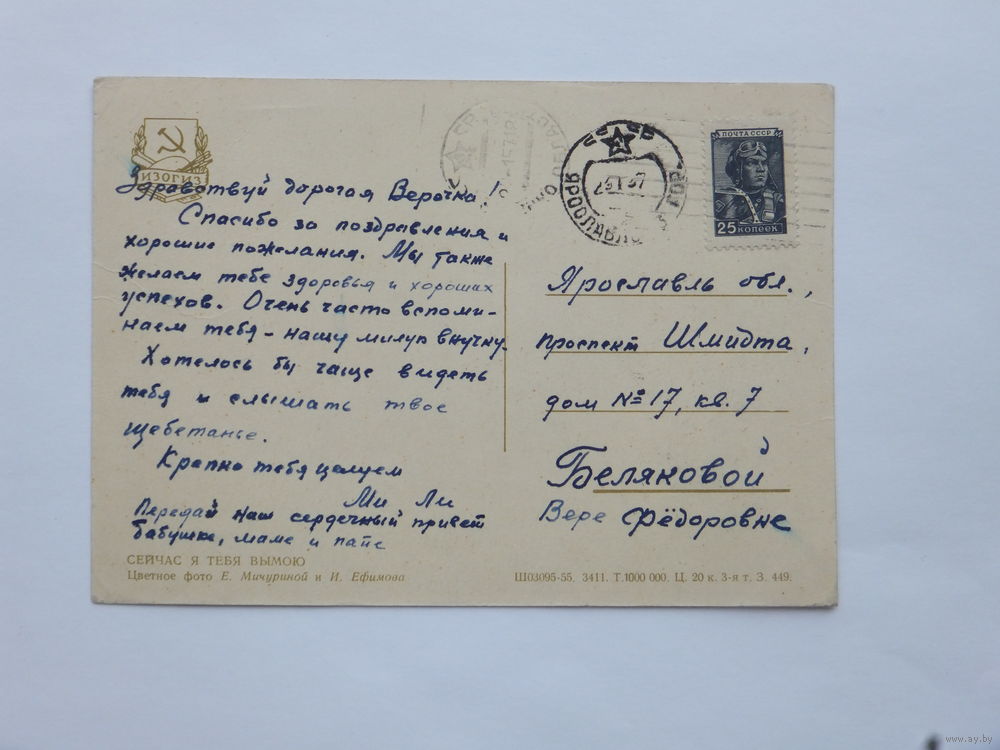 ИЗОГИЗ
Здравствуй дорогая Верочка!
Спасибо за поздравления и
хорошие пожелания. Мы также
желаем тебе здоровья и хороших
успехов. Очень часто вспоми-
наем тебя - нашу милую внучку.
Хотелось бы чаще видеть
тебя и слышать твое
щебетанье.
Крепко тебя целуем
Ми Ли
Передай наш сердечный привет
бабушке, маме и папе
СЕЙЧАС Я ТЕБЯ ВЫМОЮ
Цветное фото Е. Мичуриной и И. Ефимова
ПОЧТА СССР
25 КОПЕЕК
СССР
ЯРОСЛАВЛЬ
Ярославль обл.,
проспект Шмидта,
дом № 17, кв. 7
Беляковой
Вере Фёдоровне
Ш03095-55. 3411. Т.1000 000. Ц. 20 к. 3-я т. З. 449.
www.ay.by